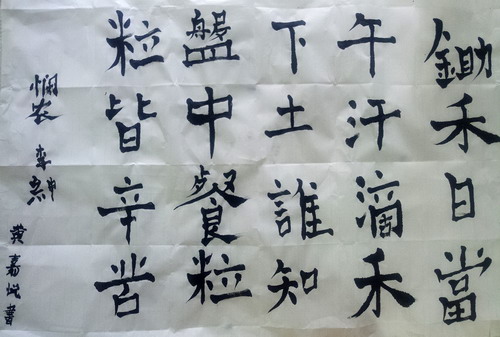 鋤禾日當
午汗滴禾
下土誰知
盤中餐粒
粒皆辛苦
悯农 李绅
黄嘉悦書